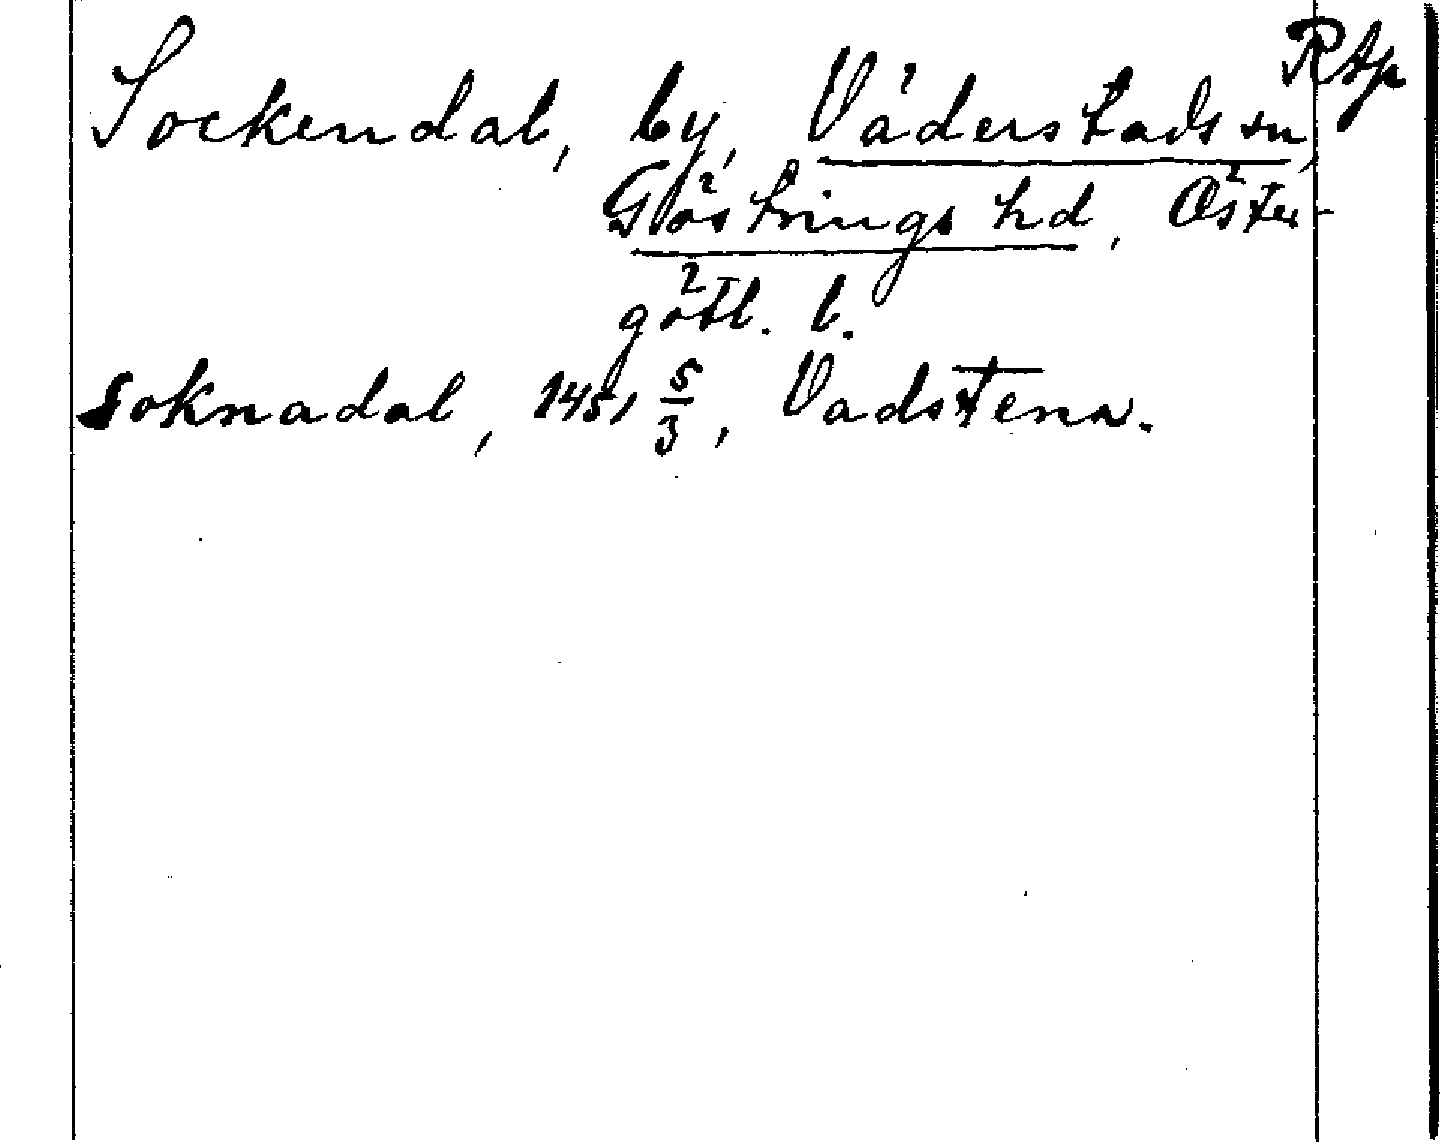 Rtp
Sockendal, by, Väderstads sn,
Göstrings hd, Öster-
götl. l.
Soknadal, 1451 5/3, Vadstena.